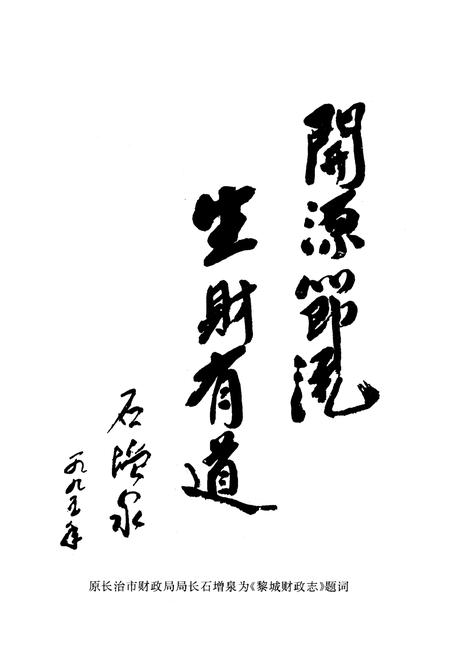 開源節流
生財有道
石增泉
一九九五年
原长治市财政局局长石增泉为《黎城财政志》题词